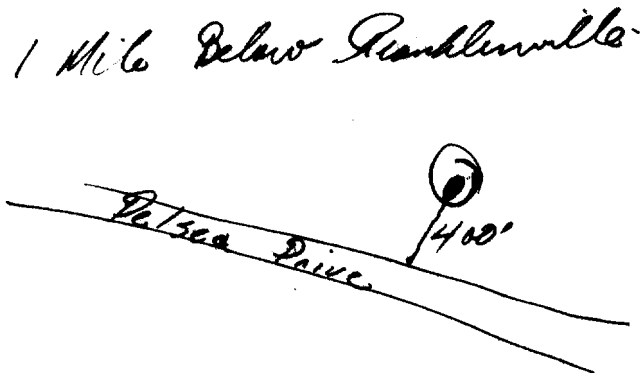 1 Mile Below Franklinville
400'
Delsea Drive